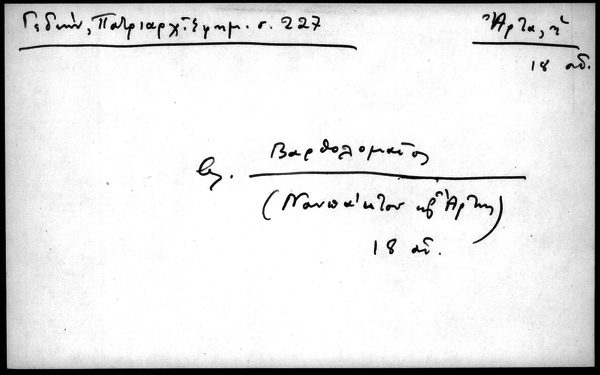 Γεδεών, Πατριαρχ. Εφημ. σ. 227
Ἄρτα, ἡ
18 αἰ.
Βαρθολομαῖος
(Ναυπάκτου κ Ἄρτης)
18 αἰ.